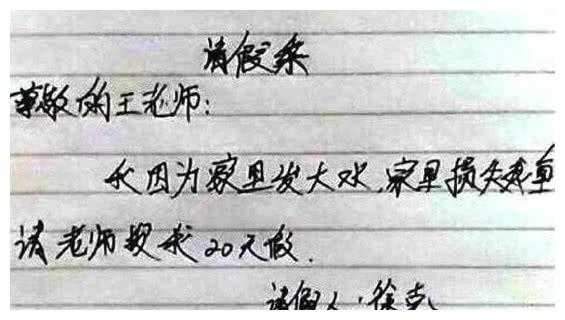 请假条
尊敬的王老师：
我因为家里发大水，家里损失惨重
请老师授我20天假.
请假人：徐克